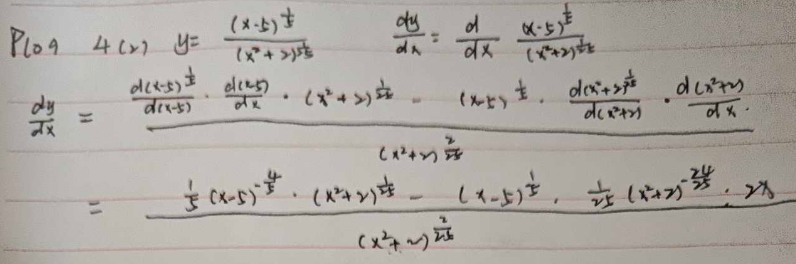 P109 4(2) y= (x-5)^{1/5} / (x²+2)^{1/25} dy/dx = d/dx (x-5)^{1/5} / (x²+2)^{1/25}
dy/dx = [ d(x-5)^{1/5}/d(x-5) · d(x-5)/dx · (x²+2)^{1/25} - (x-5)^{1/5} · d(x²+2)^{1/25}/d(x²+2) · d(x²+2)/dx. ] / (x²+2)^{2/25}
= [ 1/5 (x-5)^{-4/5} · (x²+2)^{1/25} - (x-5)^{1/5} · 1/25 (x²+2)^{-24/25} · 2x ] / (x²+2)^{2/25}